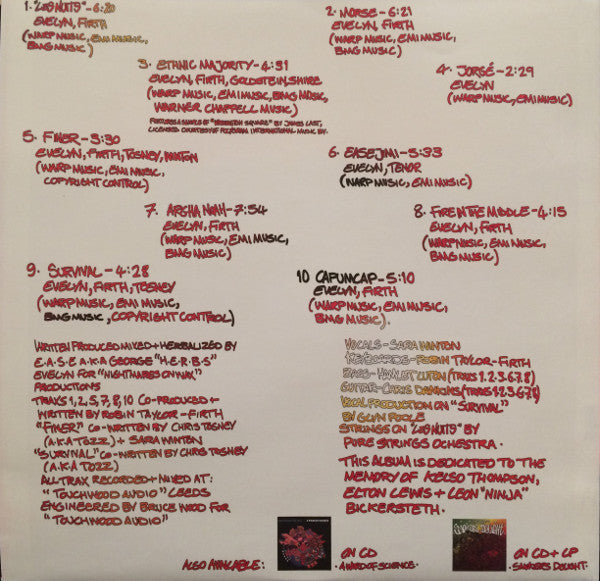 1. "LES NUITS" - 6:20
EVELYN, FIRTH
(WARP MUSIC, EMI MUSIC,
BMG MUSIC)
2. MORSE - 6:21
EVELYN, FIRTH
(WARP MUSIC, EMI MUSIC,
BMG MUSIC)
3. ETHNIC MAJORITY - 4:31
EVELYN, FIRTH, GOLDSTEIN, SHIRE
(WARP MUSIC, EMI MUSIC, BMG MUSIC,
WARNER CHAPPELL MUSIC)
FEATURES A SAMPLE OF BY JAMES LAST,
LICENSED COURTESY OF POLYGRAM INTERNATIONAL MUSIC BV.
4. JORSÉ - 2:29
EVELYN
(WARP MUSIC, EMI MUSIC)
5. FINER - 5:30
EVELYN, FIRTH, TOSHEY, WINTON
(WARP MUSIC, EMI MUSIC,
COPYRIGHT CONTROL)
6. EASEJMI - 5:33
EVELYN, TENOR
(WARP MUSIC, EMI MUSIC)
7. ARGHA NOAH - 7:54
EVELYN, FIRTH
(WARP MUSIC, EMI MUSIC,
BMG MUSIC)
8. FIRE IN THE MIDDLE - 4:15
EVELYN, FIRTH
(WARP MUSIC, EMI MUSIC,
BMG MUSIC)
9. SURVIVAL - 4:28
EVELYN, FIRTH, TOSHEY
(WARP MUSIC, EMI MUSIC,
BMG MUSIC, COPYRIGHT CONTROL)
10 CAPUMCAP - 5:10
EVELYN, FIRTH
(WARP MUSIC, EMI MUSIC,
BMG MUSIC).
WRITTEN PRODUCED MIXED + HERBALIZED BY
E.A.S.E A.K.A GEORGE "H.E.R.B.S"
EVELYN FOR "NIGHTMARES ON WAX"
PRODUCTIONS
TRAX 1, 2, 5, 7, 8, 10 CO-PRODUCED +
WRITTEN BY ROBIN TAYLOR - FIRTH
"FINER" CO-WRITTEN BY CHRIS TOSHEY
(A.K.A TOZZ) + SARA WINTON
"SURVIVAL" CO-WRITTEN BY CHRIS TOSHEY
(A.K.A TOZZ)
ALL TRAX RECORDED + MIXED AT:
"TOUCHWOOD AUDIO" LEEDS
ENGINEERED BY BRUCE WOOD FOR
"TOUCHWOOD AUDIO"
VOCALS - SARA WINTON
KEYBOARDS - ROBIN TAYLOR - FIRTH
BASS - HAMLET LUTON (TRAX 1.2.3.6.7.8)
GUITAR - CHRIS DAWKINS (TRAX 1.2.3.6.7.8)
VOCAL PRODUCTION ON "SURVIVAL"
BY GLYN POOLE
STRINGS ON "LES NUITS" BY
PURE STRINGS OCHESTRA.
THIS ALBUM IS DEDICATED TO THE
MEMORY OF KELSO THOMPSON,
ELTON LEWIS + LEON "NINJA"
BICKERSTETH.
ALSO AVAILABLE:
ON CD
· A WORD OF SCIENCE ·
ON CD + LP
· SMOKERS DELIGHT ·